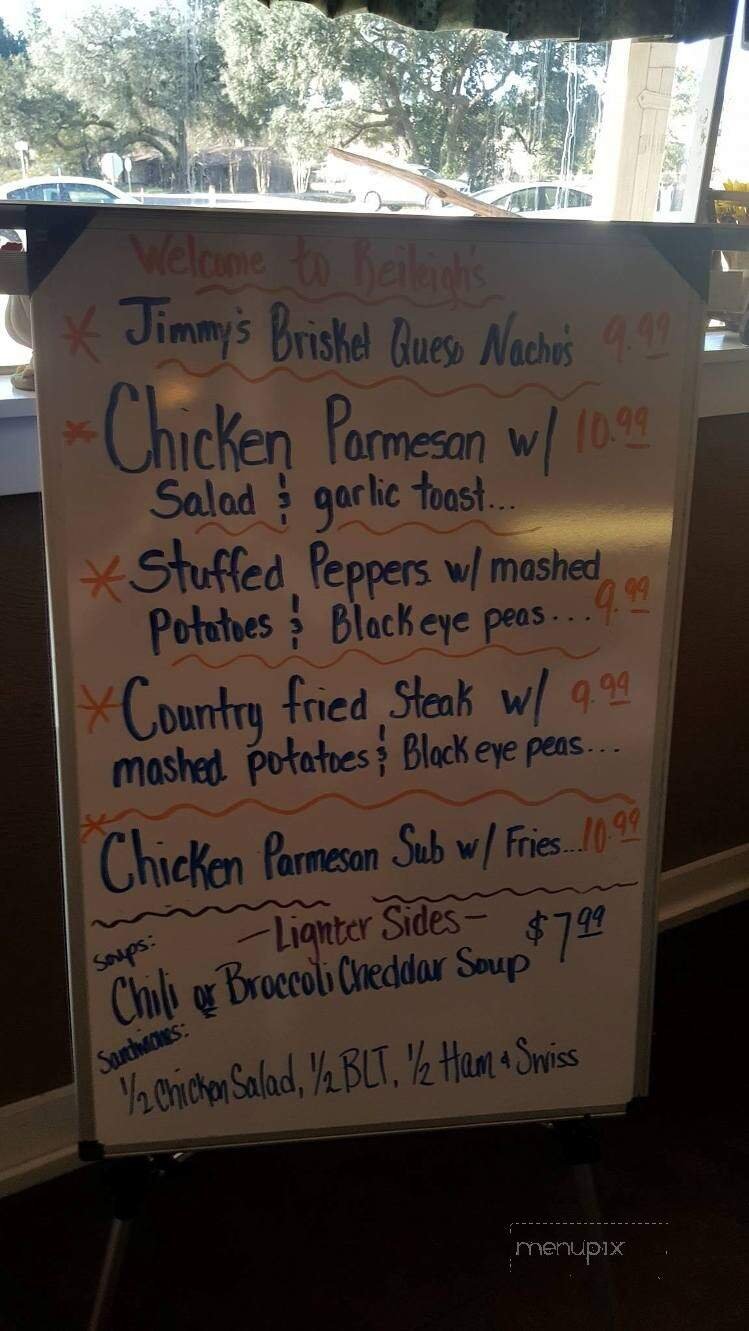 Welcome to Reileigh's
* Jimmy's Brisket Queso Nacho's 9.99
* Chicken Parmesan w/ 10.99
Salad & garlic toast...
* Stuffed Peppers w/ mashed
Potatoes & Black eye peas... 9.99
* Country fried Steak w/ 9.99
mashed potatoes & Black eye peas...
* Chicken Parmesan Sub w/ Fries... 10.99
- Lighter Sides - $7.99
Soups:
Chili or Broccoli Cheddar Soup
Sandwiches:
1/2 Chicken Salad, 1/2 BLT, 1/2 Ham & Swiss
menupix